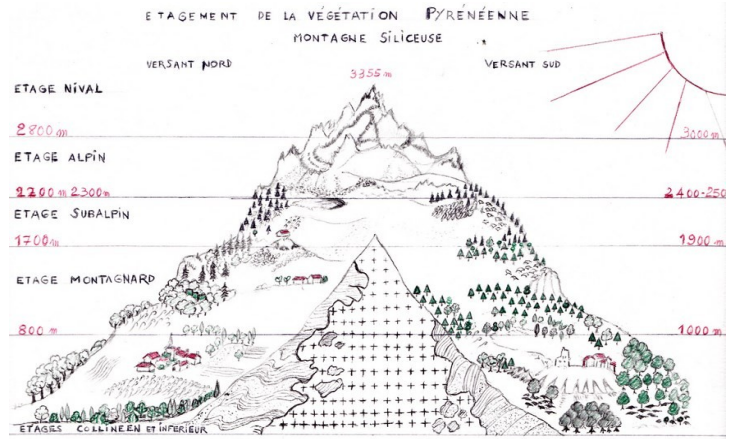 ETAGEMENT DE LA VÉGÉTATION PYRÉNÉENNE
MONTAGNE SILICEUSE
VERSANT NORD
VERSANT SUD
3355 m
ETAGE NIVAL
2800 m
3000 m
ETAGE ALPIN
2200 m 2300m
2400-250
ETAGE SUBALPIN
1700m
1900 m
ETAGE MONTAGNARD
800 m
1000 m
ETAGES COLLINEEN ET INFERIEUR